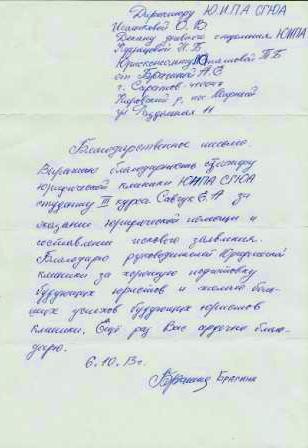 Директору ЮИПА СГЮА
О. В
Декану дневного отделения ЮИПА
И. Б
Юрисконсульту Т Б
от Брагиной А С
г. Саратов
Кировский р, пос Мирный

Благодарственное письмо.
Выражаю благодарность стажёру
юридической клиники ЮИПА СГЮА
студенту III курса Савчук Е. А за
оказание юридической помощи и
составлении искового заявления.
Благодарю руководителей Юридической
клиники за хорошую подготовку
будующих юристов и желаю боль-
ших успехов будующих юристов
клиники. Ещё раз Вас сердечно благо-
дарю.
6. 10. 13 г.
Брагина